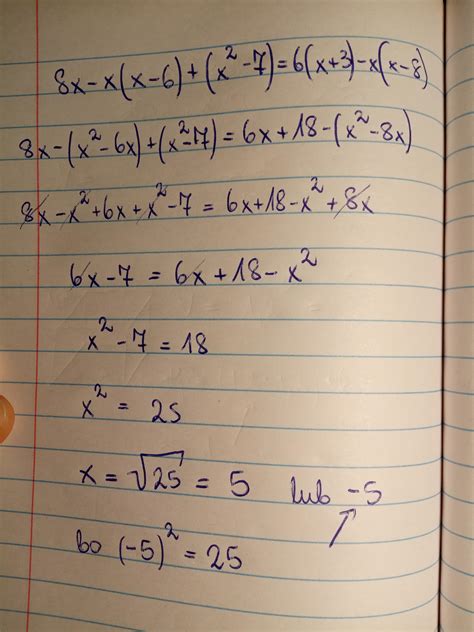 8x-x(x-6)+(x²-7)=6(x+3)-x(x-8)
8x-(x²-6x)+(x²-7)=6x+18-(x²-8x)
8x-x²+6x+x²-7=6x+18-x²+8x
6x-7=6x+18-x²
x²-7=18
x²=25
x=√25=5 lub -5
bo (-5)²=25